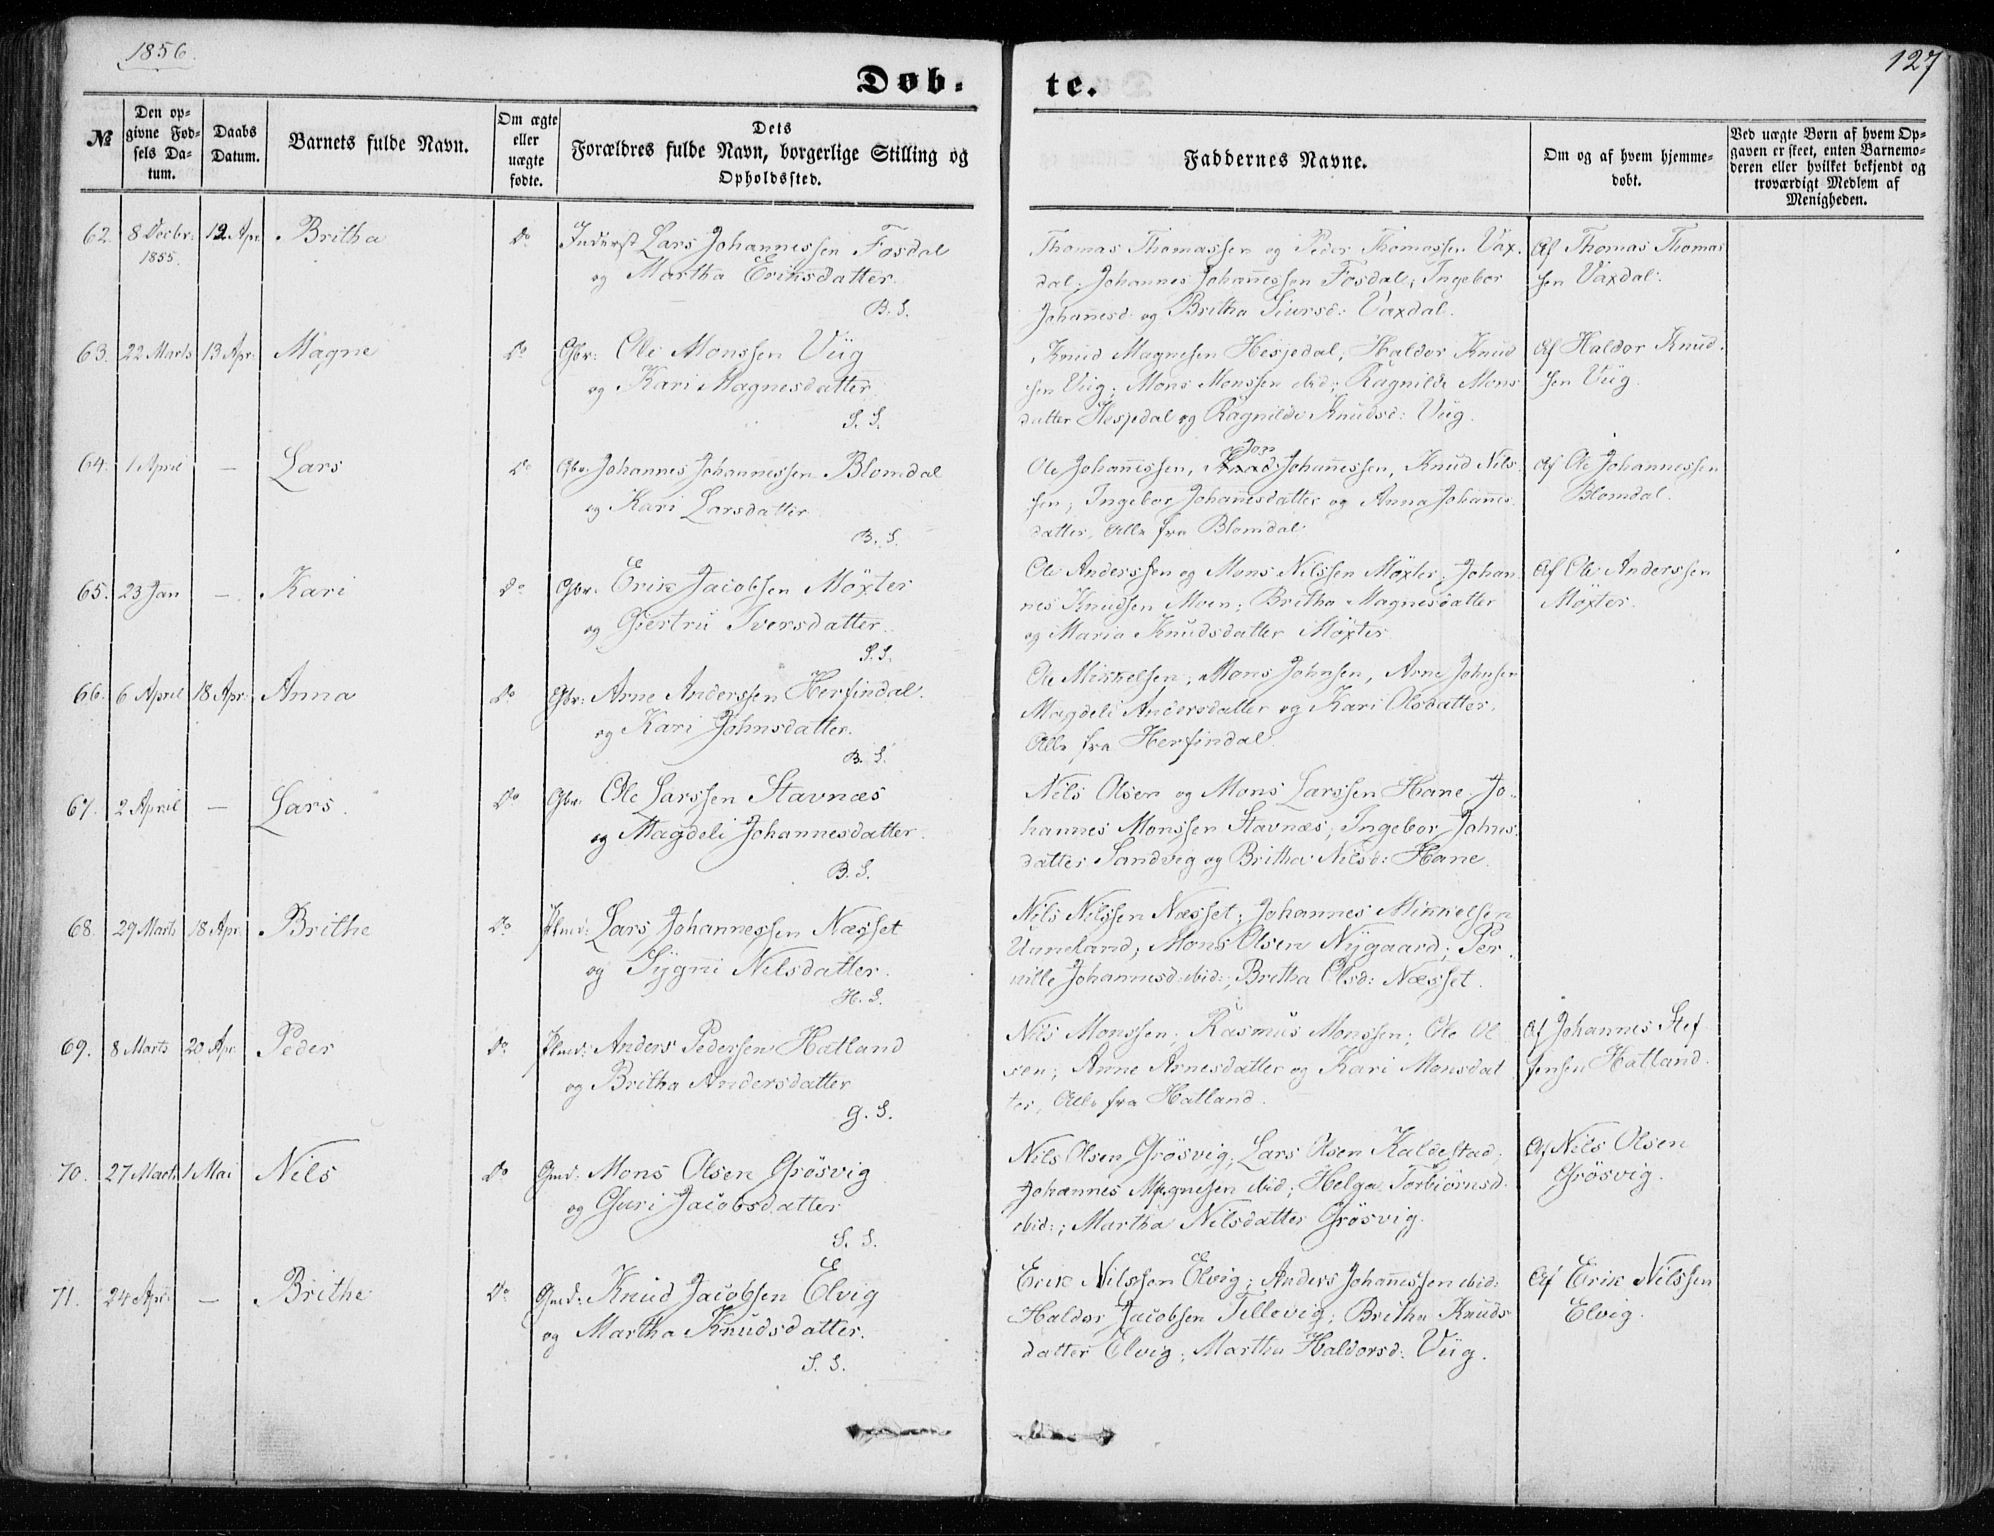 1856.
127
Døb-
te.
№
Den op-
givne Fød-
sels Da-
tum.
Daabs
Datum.
Barnets fulde Navn.
Om ægte
eller
uægte
fødte.
Dets
Forældres fulde Navn, borgerlige Stilling og
Opholdssted.
Faddernes Navne.
Om og af hvem hjemme-
døbt.
Ved uægte Børn af hvem Op-
gaven er skeet, enten Barnemo-
deren eller hvilket bekjendt og
troværdigt Medlem af
Menigheden.
62. 8 Decbr: 12 Apr. Britha Do Inderst Lars Johannessen Fosdal
1855.
og Martha Eriksdatter.
B. S.
Thomas Thomassen og Peder Thomassen Vax-
dal; Johannes Johanessen Fosdal; Ingebor
Johanesd: og Britha Siursd: Vaxdal.
Af Thomas Thomas
sen Vaxdal.
63. 22 Marts 13 Apr. Magne Do Gbr: Ole Monssen Viig
og Kari Magnesdatter.
S. S.
Knud Magnesen Hesjedal; Haldor Knud
sen Viig; Mons Monssen ibid; Ragnilde Mons
datter Hesjedal og Ragnilde Knudsd: Viig.
Af Haldor Knud-
sen Viig.
64. 1 April — Lars Do Gbr: Johannes Johannessen Blomdal
og Kari Larsdatter.
B. S.
Ole Johanessen, Jon Johanessen, Knud Nils-
sen; Ingebor Johanesdatter og Anna Johanes
datter, Alle fra Blomdal.
Af Ole Johannessen
Blomdal.
65. 23 Jan — Kari Do Gbr: Erik Jacobsen Møxter
og Giertru Iversdatter.
S. S.
Ole Anderssen og Mons Nilssen Møxter; Johan
nes Knudsen Moen; Britha Magnesdatter
og Maria Knudsdatter Møxter.
Af Ole Anderssen
Møxter.
66. 6 April 18 Apr. Anna Do Gbr: Arne Anderssen Herfindal.
og Kari Johnsdatter.
B. S.
Ole Mikkelsen; Mons Johnsen, Arne Johnsen
Magdeli Andersdatter og Kari Olsdatter,
Alle fra Herfindal.
67. 2 April — Lars. Do Gbr: Ole Larssen Stavnæs
og Magdeli Johannesdatter.
B. S.
Nils Olsen og Mons Larssen Hane; Jo-
hannes Monssen Stavnæs; Ingebor Johns-
datter Sandvig og Britha Nilsd: Hane.
68. 29 Marts 18 Apr. Brithe Do Plmd: Lars Johannessen Næsset
og Sygni Nilsdatter.
H. S.
Nils Nilssen Næsset; Johannes Mikkelsen
Unneland; Mons Olsen Nygaard; Per-
nille Johannesd: ibid:; Britha Olsd: Næsset.
69. 8 Marts 20 Apr. Peder Do Plmd: Anders Pedersen Hatland
og Britha Andersdatter
G. S.
Nils Monssen; Rasmus Monssen; Ole Ol
sen; Anne Arnesdatter og Kari Monsdat
ter, Alle fra Hatland.
Af Johannes Stef
fensen Hatland.
70. 27 Marts 1 Mai Nils Do Gmd: Mons Olsen Grøsvig
og Guri Jacobsdatter
S. S.
Nils Olsen Grøsvig; Lars Olsen Kaldestad;
Johannes Magnesen ibid; Helga Torbiørnsd.
ibid:; Martha Nilsdatter Grøsvig.
Af Nils Olsen
Grøsvig.
71. 24 April — Brithe Do Gmd: Knud Jacobsen Elvig
og Martha Knudsdatter.
S. S.
Erik Nilssen Elvig; Anders Johanessen ibid:
Haldor Jacobsen Tellevig; Britha Knuds
datter Elvig; Martha Haldorsd: Viig.
Af Erik Nilssen
Elvig.